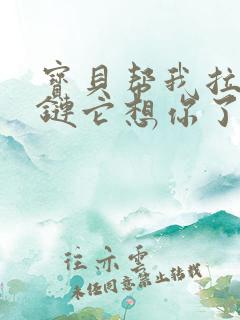 寶貝帮我拉
鏈它想你了
往亦雲
未经同意禁止转载